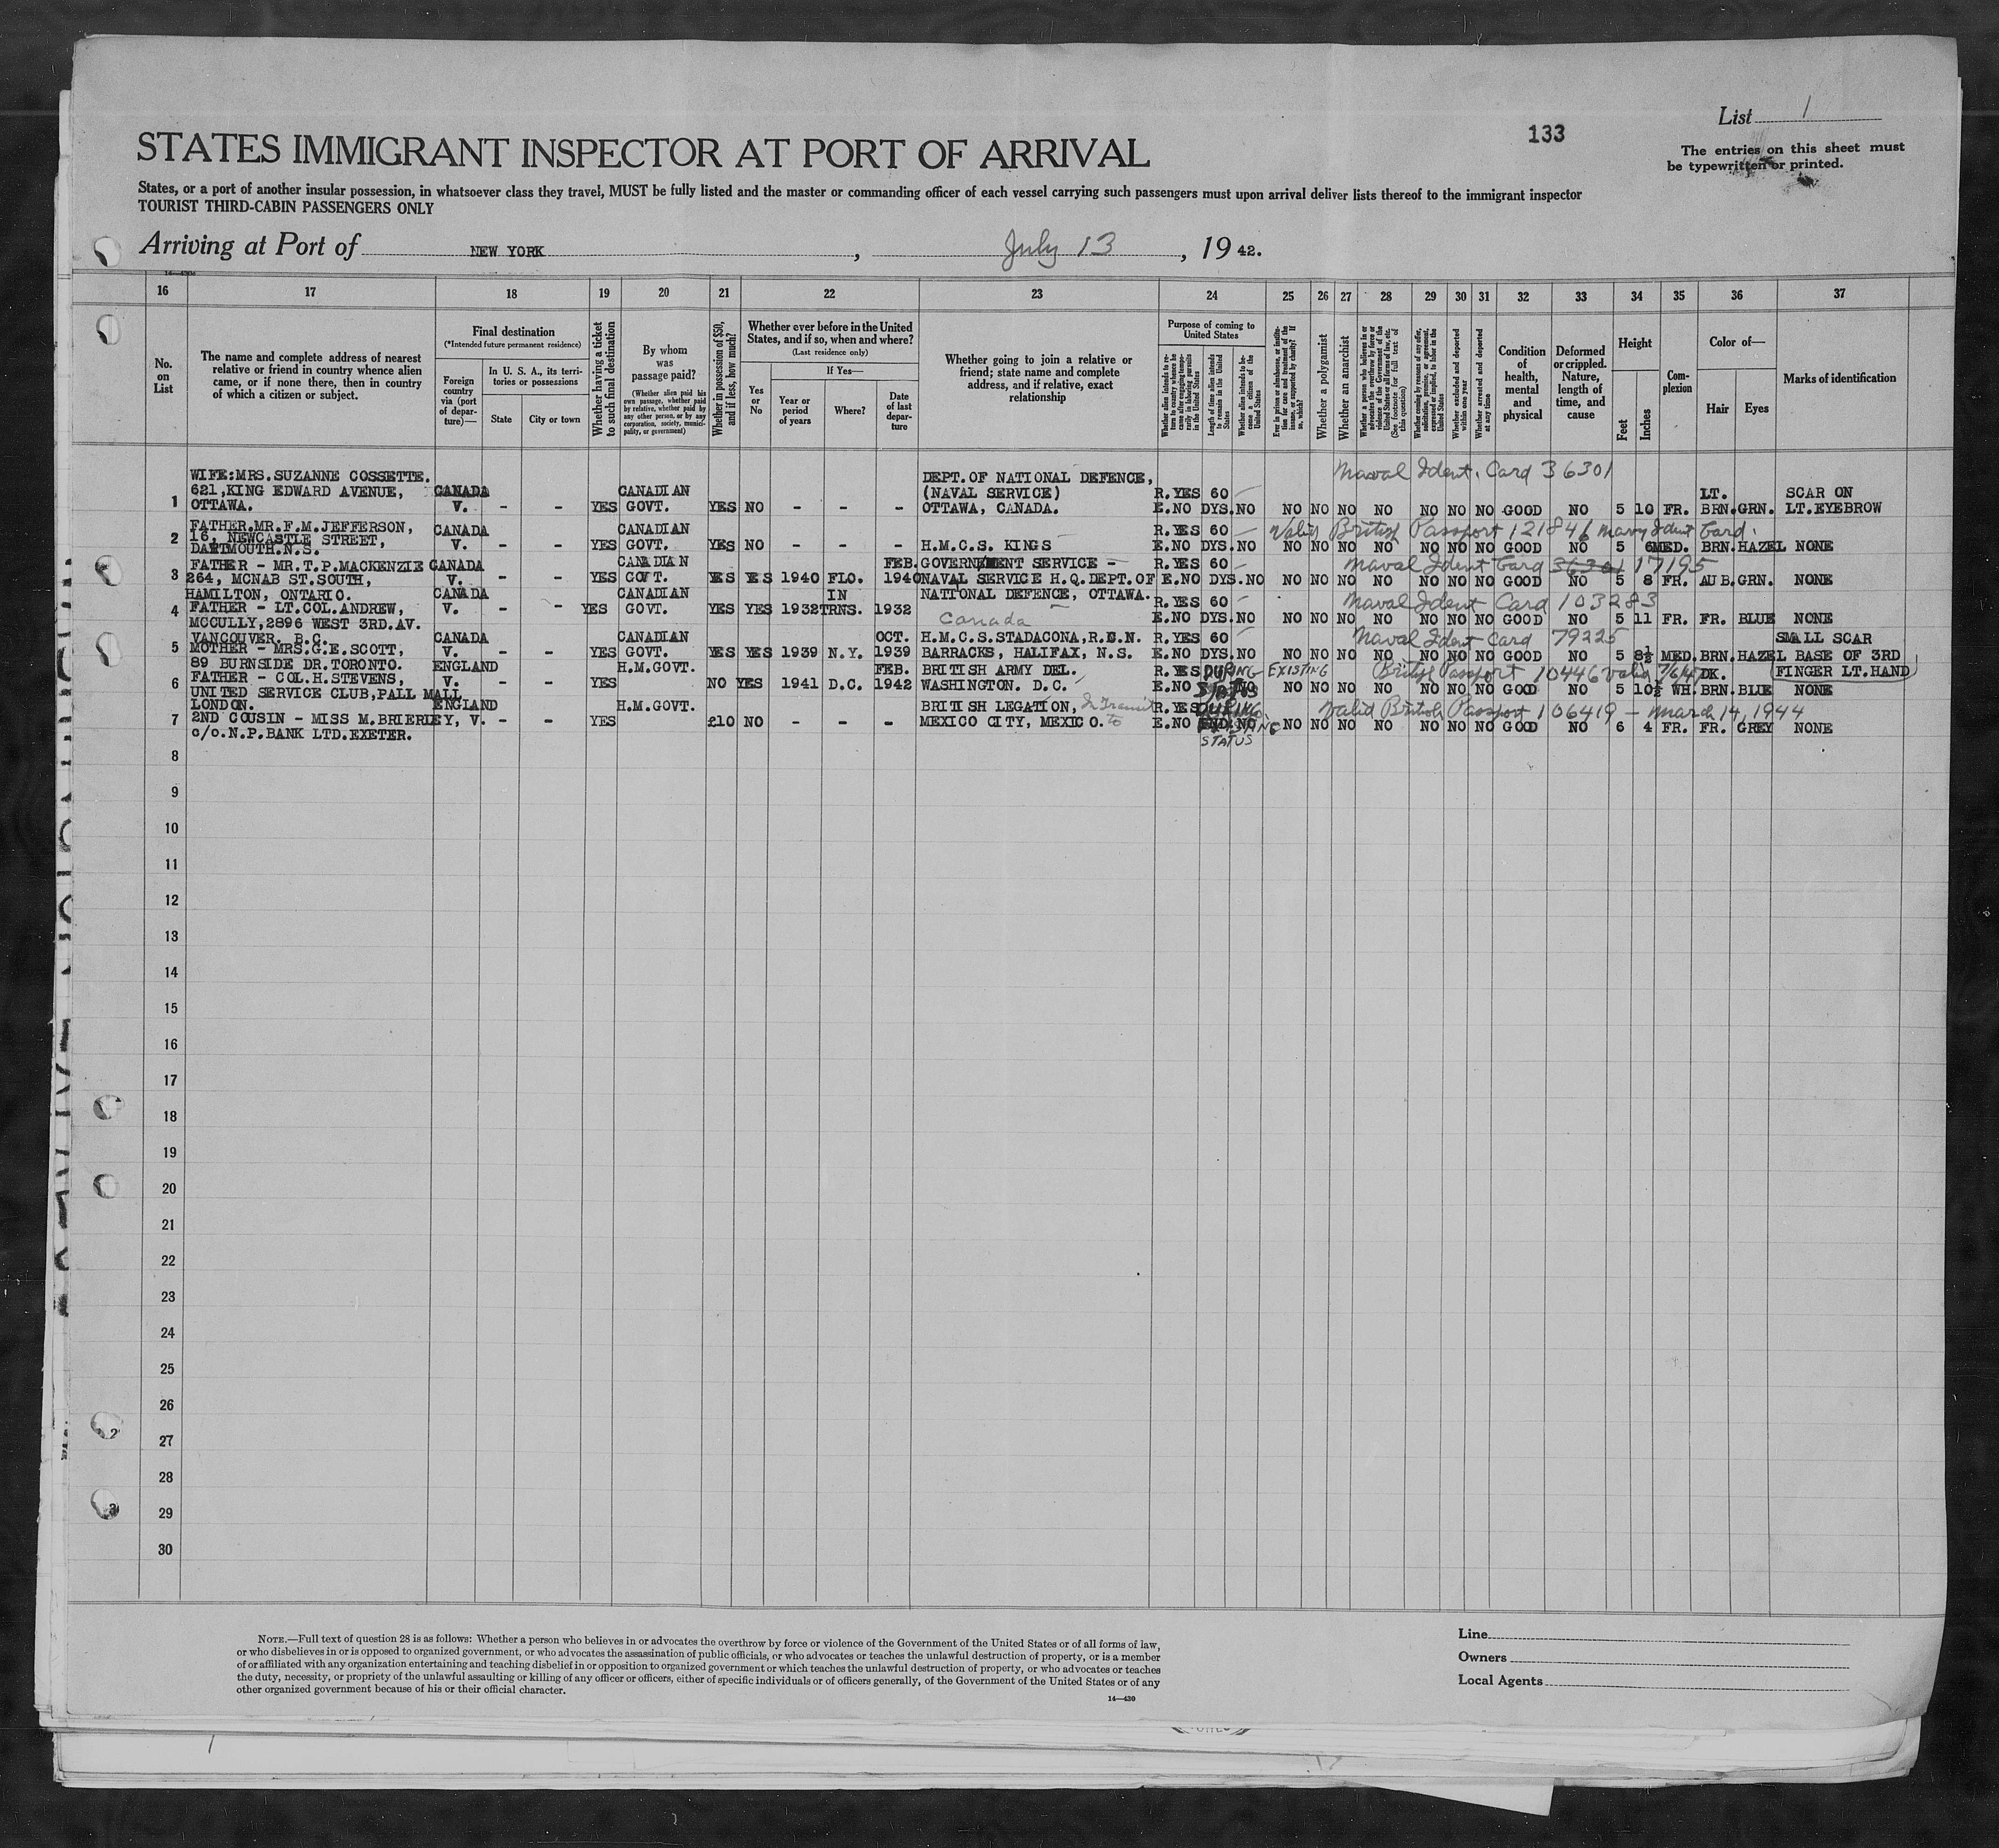 List 1
133
The entries on this sheet must
be typewritten or printed.
STATES IMMIGRANT INSPECTOR AT PORT OF ARRIVAL
States, or a port of another insular possession, in whatsoever class they travel, MUST be fully listed and the master or commanding officer of each vessel carrying such passengers must upon arrival deliver lists thereof to the immigrant inspector
TOURIST THIRD-CABIN PASSENGERS ONLY
Arriving at Port of NEW YORK, July 13, 19 42.
16 17 18 19 20 21 22 23 24 25 26 27 28 29 30 31 32 33 34 35 36 37
No. on List
The name and complete address of nearest
relative or friend in country whence alien
came, or if none there, then in country
of which a citizen or subject.
Final destination
(*Intended future permanent residence)
Foreign country via (port of departure)—
In U. S. A., its territories or possessions
State
City or town
Whether having a ticket to such final destination
By whom was passage paid?
(Whether alien paid his own passage, whether paid by relative, whether paid by any other person, or by any corporation, society, municipality, or government)
Whether in possession of $50, and if less, how much?
Whether ever before in the United States, and if so, when and where?
(Last residence only)
Yes or No
If Yes—
Year or period of years
Where?
Date of last departure
Whether going to join a relative or
friend; state name and complete
address, and if relative, exact
relationship
Purpose of coming to United States
Whether alien intends to return to country whence he came after engaging temporarily in laboring pursuits in the United States
Length of time alien intends to remain in the United States
Whether alien intends to become a citizen of the United States
Ever in prison or almshouse, or institution for care and treatment of the insane, or supported by charity? If so, which?
Whether a polygamist
Whether an anarchist
Whether a person who believes in or advocates the overthrow by force or violence of the Government of the United States or all forms of law, etc. (See footnote for full text of this question)
Whether coming by reasons of any offer, solicitation, promise, or agreement, expressed or implied, to labor in the United States
Whether excluded and deported within one year
Whether arrested and deported at any time
Condition of health, mental and physical
Deformed or crippled. Nature, length of time, and cause
Height
Feet
Inches
Complexion
Color of—
Hair
Eyes
Marks of identification
Naval Ident. Card 36301
1 WIFE:MRS.SUZANNE COSSETTE. 621,KING EDWARD AVENUE, OTTAWA. CANADA V. - - YES CANADIAN GOVT. YES NO - - - DEPT.OF NATIONAL DEFENCE, (NAVAL SERVICE) OTTAWA, CANADA. R.YES E.NO 60 DYS. NO NO NO NO NO NO NO NO GOOD NO 5 10 FR. LT. BRN. GRN. SCAR ON LT.EYEBROW
Valid British Passport 121846 Navy Ident Card.
2 FATHER.MR.F.M.JEFFERSON, 16, NEWCASTLE STREET, DARTMOUTH.N.S. CANADA V. - - YES CANADIAN GOVT. YES NO - - - H.M.C.S. KINGS R.YES E.NO 60 DYS. NO NO NO NO NO NO NO NO GOOD NO 5 6 MED. BRN. HAZEL NONE
Naval Ident Card 36301 17195
3 FATHER - MR.T.P.MACKENZIE 264, MCNAB ST.SOUTH, HAMILTON, ONTARIO. CANADA V. - - YES CANADIAN GOVT. YES YES 1940 FLO. FEB. 1940 GOVERNMENT SERVICE - NAVAL SERVICE H.Q.DEPT.OF NATIONAL DEFENCE, OTTAWA. R.YES E.NO 60 DYS. NO NO NO NO NO NO NO NO GOOD NO 5 8 FR. AUB. GRN. NONE
Naval Ident Card 103283
4 FATHER - LT.COL.ANDREW, MCCULLY,2896 WEST 3RD.AV. VANCOUVER. B.C. CANADA V. - - YES CANADIAN GOVT. YES YES 1932 IN TRNS. 1932 Canada R.YES E.NO 60 DYS. NO NO NO NO NO NO NO NO GOOD NO 5 11 FR. FR. BLUE NONE
Naval Ident Card 79225
5 MOTHER - MRS.G.E.SCOTT, 89 BURNSIDE DR.TORONTO. CANADA V. - - YES CANADIAN GOVT. YES YES 1939 N.Y. OCT. 1939 H.M.C.S.STADACONA,R.C.N. BARRACKS, HALIFAX, N.S. R.YES E.NO 60 DYS. NO NO NO NO NO NO NO NO GOOD NO 5 8½ MED. BRN. HAZEL SMALL SCAR BASE OF 3RD FINGER LT.HAND
British Passport 10446 valid
6 FATHER - COL.H.STEVENS, UNITED SERVICE CLUB,PALL MALL LONDON. ENGLAND V. - - YES H.M.GOVT. NO YES 1941 D.C. FEB. 1942 BRITISH ARMY DEL. WASHINGTON. D.C. R.YES E.NO DURING EXISTING STATUS NO NO NO NO NO NO NO NO GOOD NO 5 10½ WH. DK. BRN. BLUE NONE
Valid British Passport 106419 - March 14, 1944
7 2ND COUSIN - MISS M.BRIERLEY, c/o.N.P.BANK LTD.EXETER. ENGLAND V. - - YES H.M.GOVT. £10 NO - - - BRITISH LEGATION, In Transit to MEXICO CITY, MEXICO. R.YES E.NO DURING EXISTING STATUS NO NO NO NO NO NO NO NO GOOD NO 6 4 FR. FR. GREY NONE
8
9
10
11
12
13
14
15
16
17
18
19
20
21
22
23
24
25
26
27
28
29
30
NOTE.—Full text of question 28 is as follows: Whether a person who believes in or advocates the overthrow by force or violence of the Government of the United States or of all forms of law,
or who disbelieves in or is opposed to organized government, or who advocates the assassination of public officials, or who advocates or teaches the unlawful destruction of property, or is a member
of or affiliated with any organization entertaining and teaching disbelief in or opposition to organized government or which teaches the unlawful destruction of property, or who advocates or teaches
the duty, necessity, or propriety of the unlawful assaulting or killing of any officer or officers, either of specific individuals or of officers generally, of the Government of the United States or of any
other organized government because of his or their official character.
14—430
Line
Owners
Local Agents